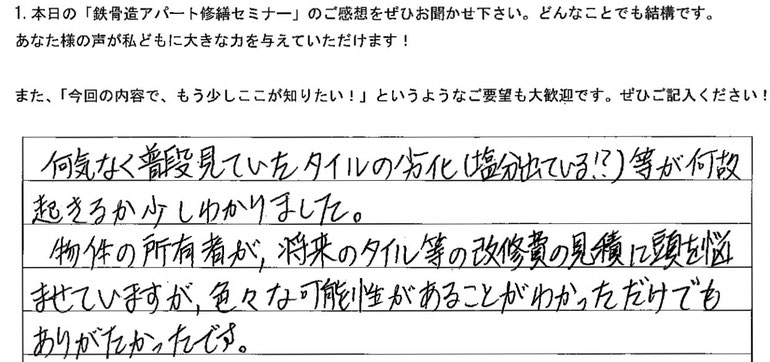 1. 本日の「鉄骨造アパート修繕セミナー」のご感想をぜひお聞かせ下さい。どんなことでも結構です。
あなた様の声が私どもに大きな力を与えていただけます！
また、「今回の内容で、もう少しここが知りたい！」というようなご要望も大歓迎です。ぜひご記入ください！
何気なく普段見ていたタイルの劣化(塩分出ている!?)等が何故
起きるか少しわかりました。
物件の所有者が,将来のタイル等の改修費の見積に頭を悩
ませていますが,色々な可能性があることがわかっただけでも
ありがたかったです。